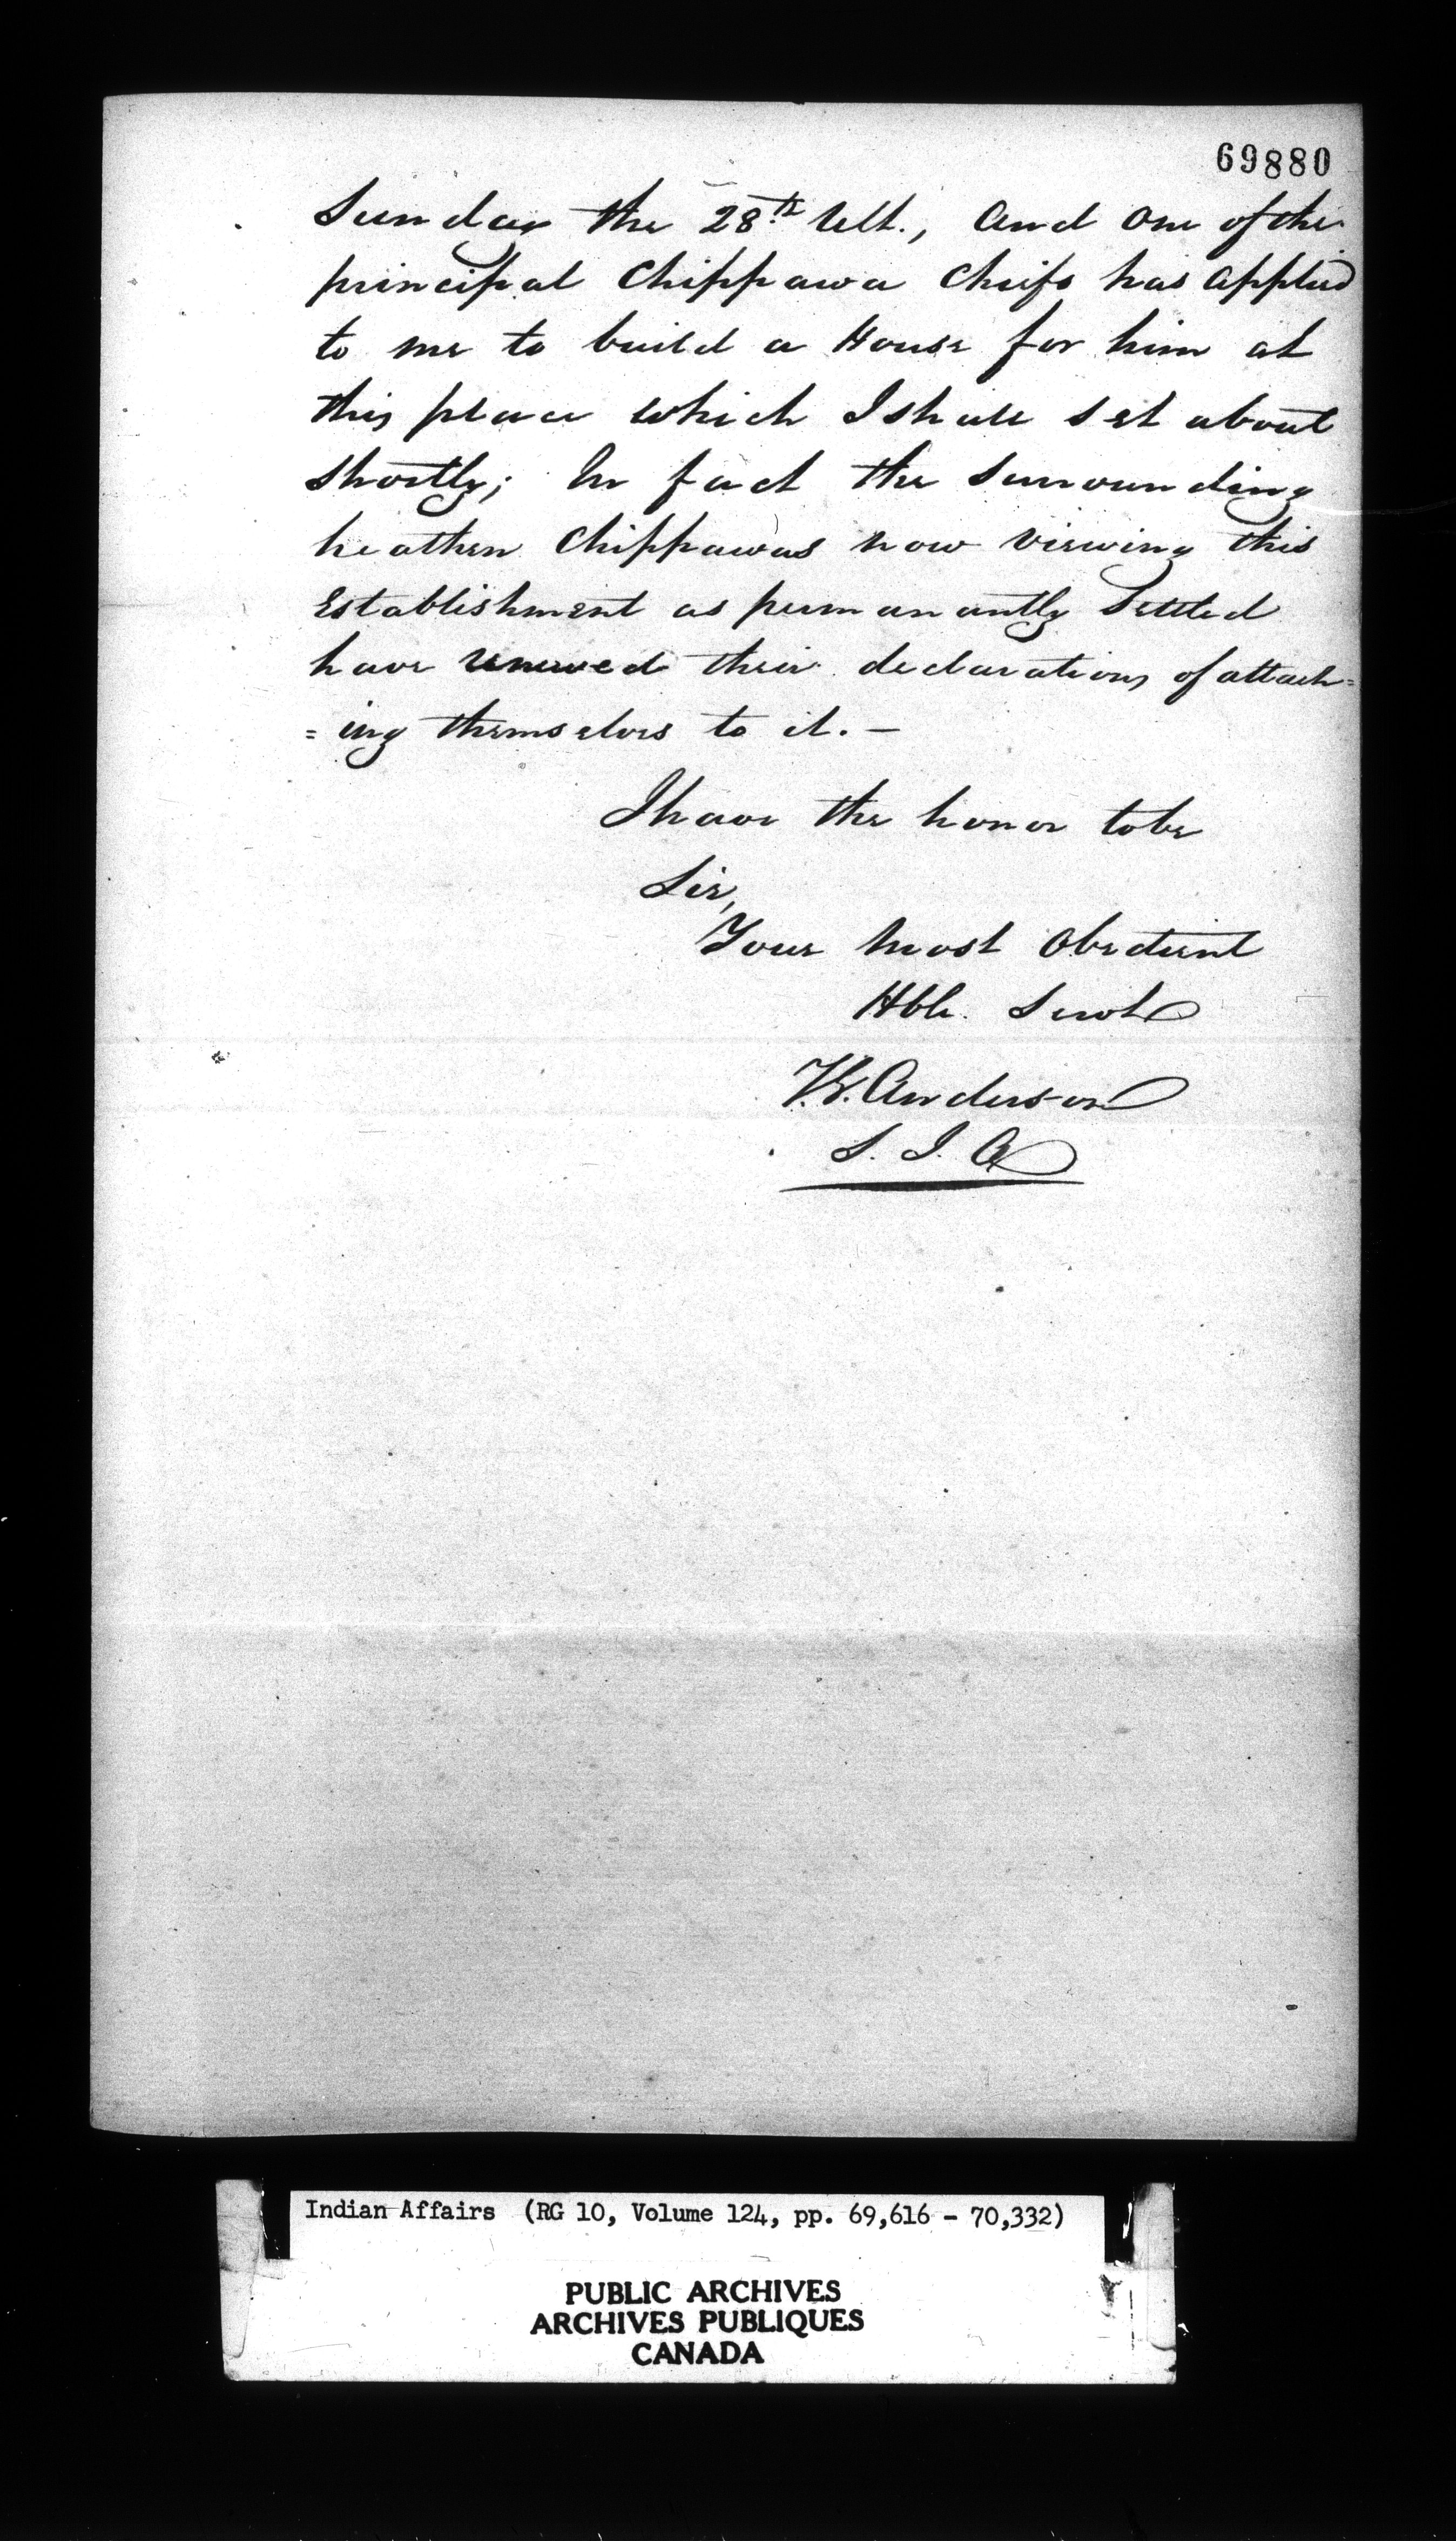 69880
Sunday the 28th Ult., And One of the
principal Chippawa Chiefs has applied
to me to build a House for him at
this place which I shall set about
shortly; In fact the surrounding
heathen Chippawas now viewing this
Establishment as permanantly Settled
have renewed their declarations of attach=
=ing themselves to it. —
I have the honor to be
Sir,
Your Most Obedient
Hble. Servt
T.G. Anderson
S. I. A
Indian Affairs (RG 10, Volume 124, pp. 69,616 - 70,332)
PUBLIC ARCHIVES
ARCHIVES PUBLIQUES
CANADA